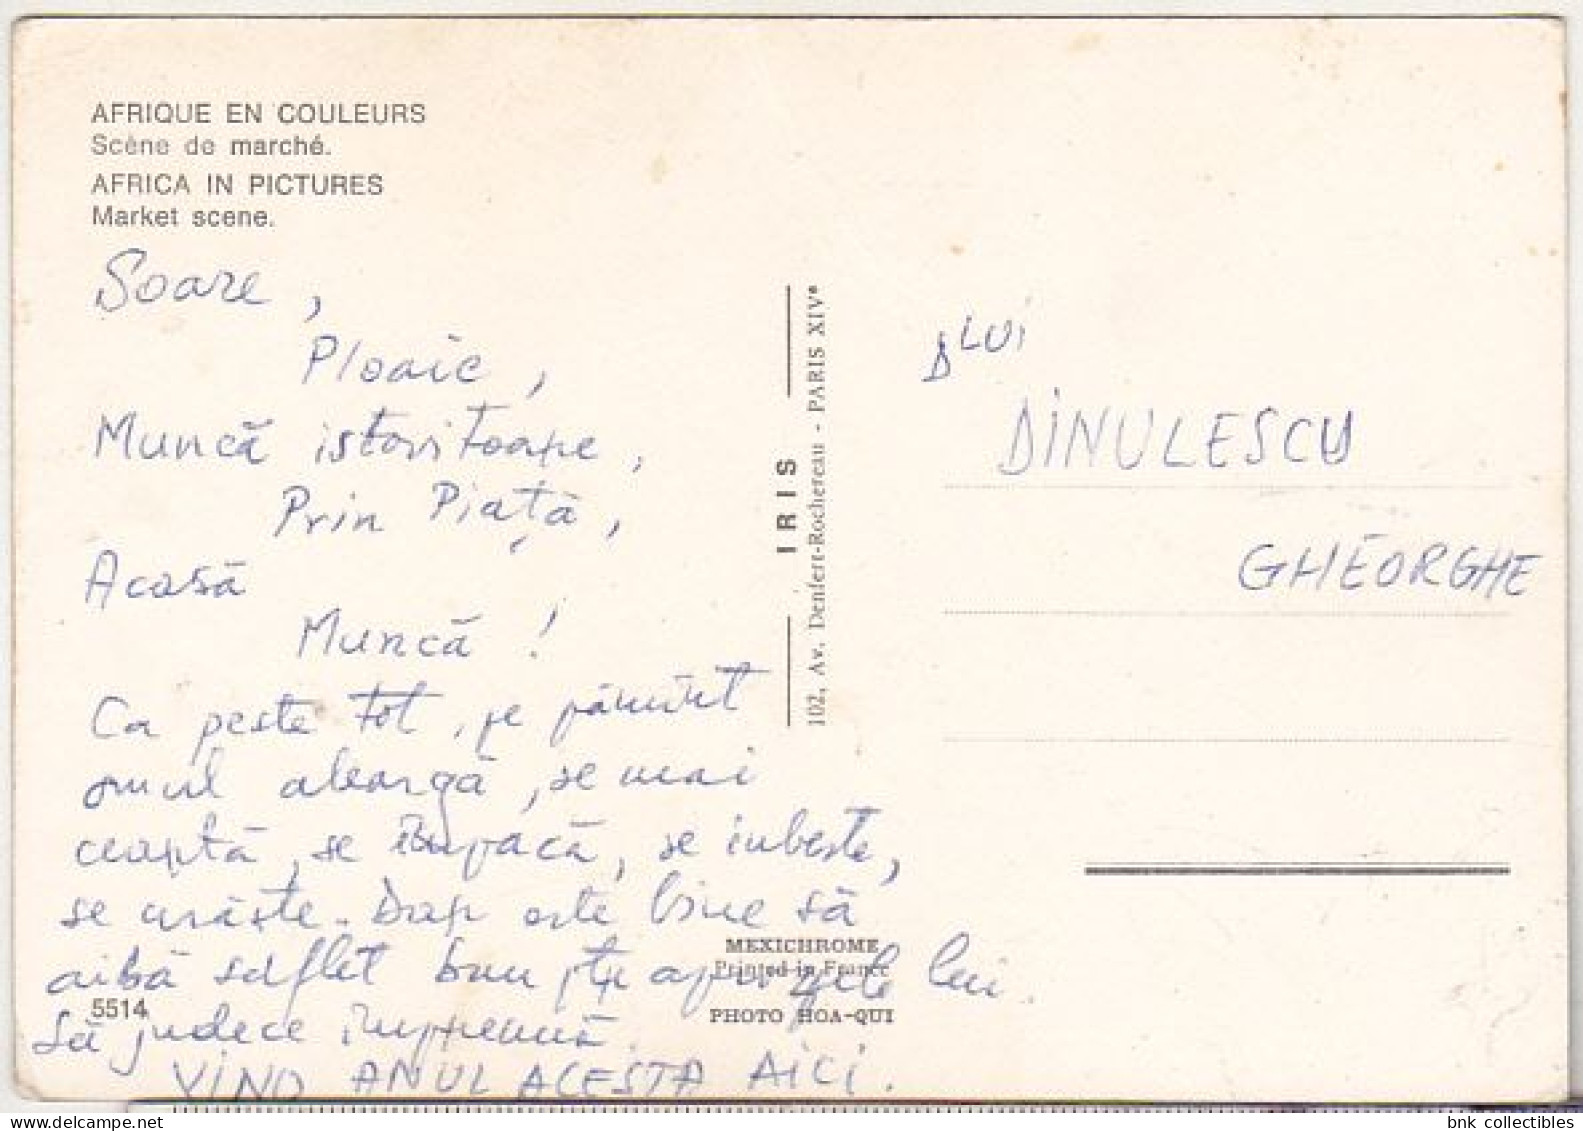 AFRIQUE EN COULEURS
Scène de marché.
AFRICA IN PICTURES
Market scene.
Soare,
Ploaie,
Muncă istovitoare,
Prin Piață,
Acasă
Muncă !
Ca peste tot, pe pămînt
omul aleargă, se mai
ceartă, se împacă, se iubește,
se urăște. Dar este bine să
aibă suflet bun ptr
lui.
Să judece împreună.
VINO ANUL ACESTA AICI.
5514
IRIS
102, Av. Denfert-Rochereau - PARIS XIVe
MEXICHROME
Printed in France
PHOTO HOA-QUI
DLUI
DINULESCU
GHEORGHE
bnk collectibles